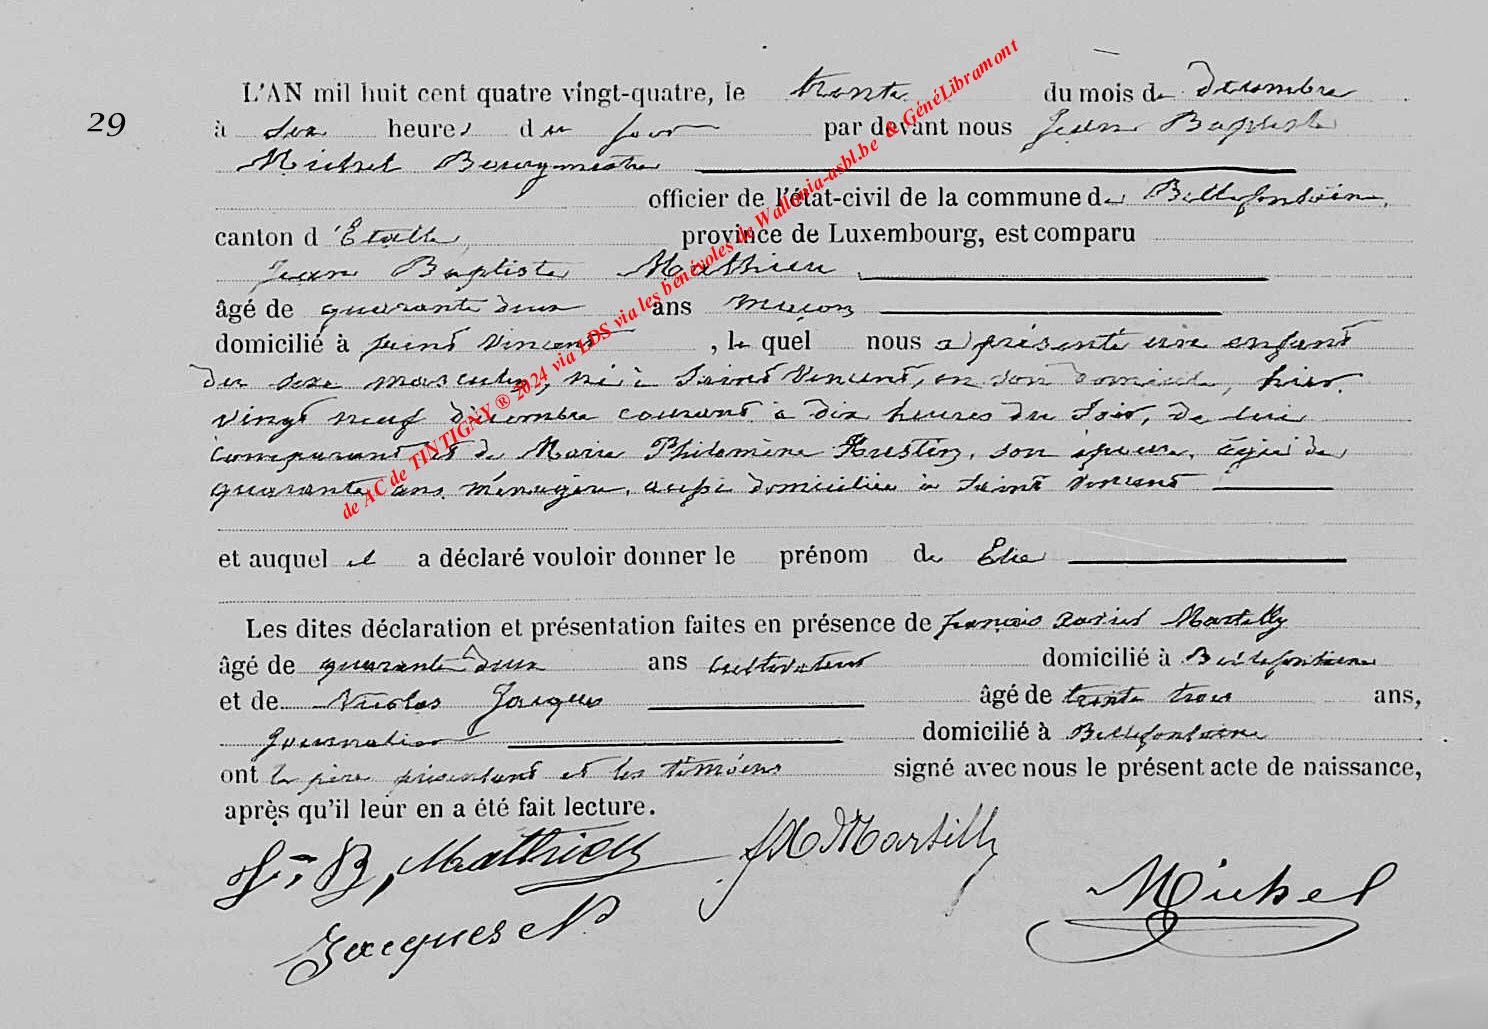 29
L'AN mil huit cent quatre vingt-quatre, le trente du mois de décembre
à six heures du soir par devant nous Jean Baptiste
Michel Bourgmestre
officier de l'état-civil de la commune de Bellefontaine,
canton d'Etalle, province de Luxembourg, est comparu
Jean Baptiste Mathieu
âgé de quarante deux ans maçon
domicilié à Saint Vincent, le quel nous a présenté un enfant
du sexe masculin, né à Saint Vincent, en son domicile, hier
vingt neuf décembre courant à dix heures du soir, de lui
comparant et de Marie Philomène, son épouse, âgée de
quarante ans, ménagère, aussi domiciliée à Saint Vincent
et auquel il a déclaré vouloir donner le prénom de Elie
Les dites déclaration et présentation faites en présence de François Xavier Martilly
âgé de quarante deux ans cultivateur domicilié à Bellefontaine
et de Nicolas Jacques âgé de trente trois ans,
Journalier domicilié à Bellefontaine
ont le père présentant et les témoins signé avec nous le présent acte de naissance,
après qu'il leur en a été fait lecture.
J. B. Mathieu FX Martilly
Michel
Jacques N
de AC de TINTIGNY ® 2024 via LDS via les bénévoles de Wallonia-asbl.be & GénéLibramont